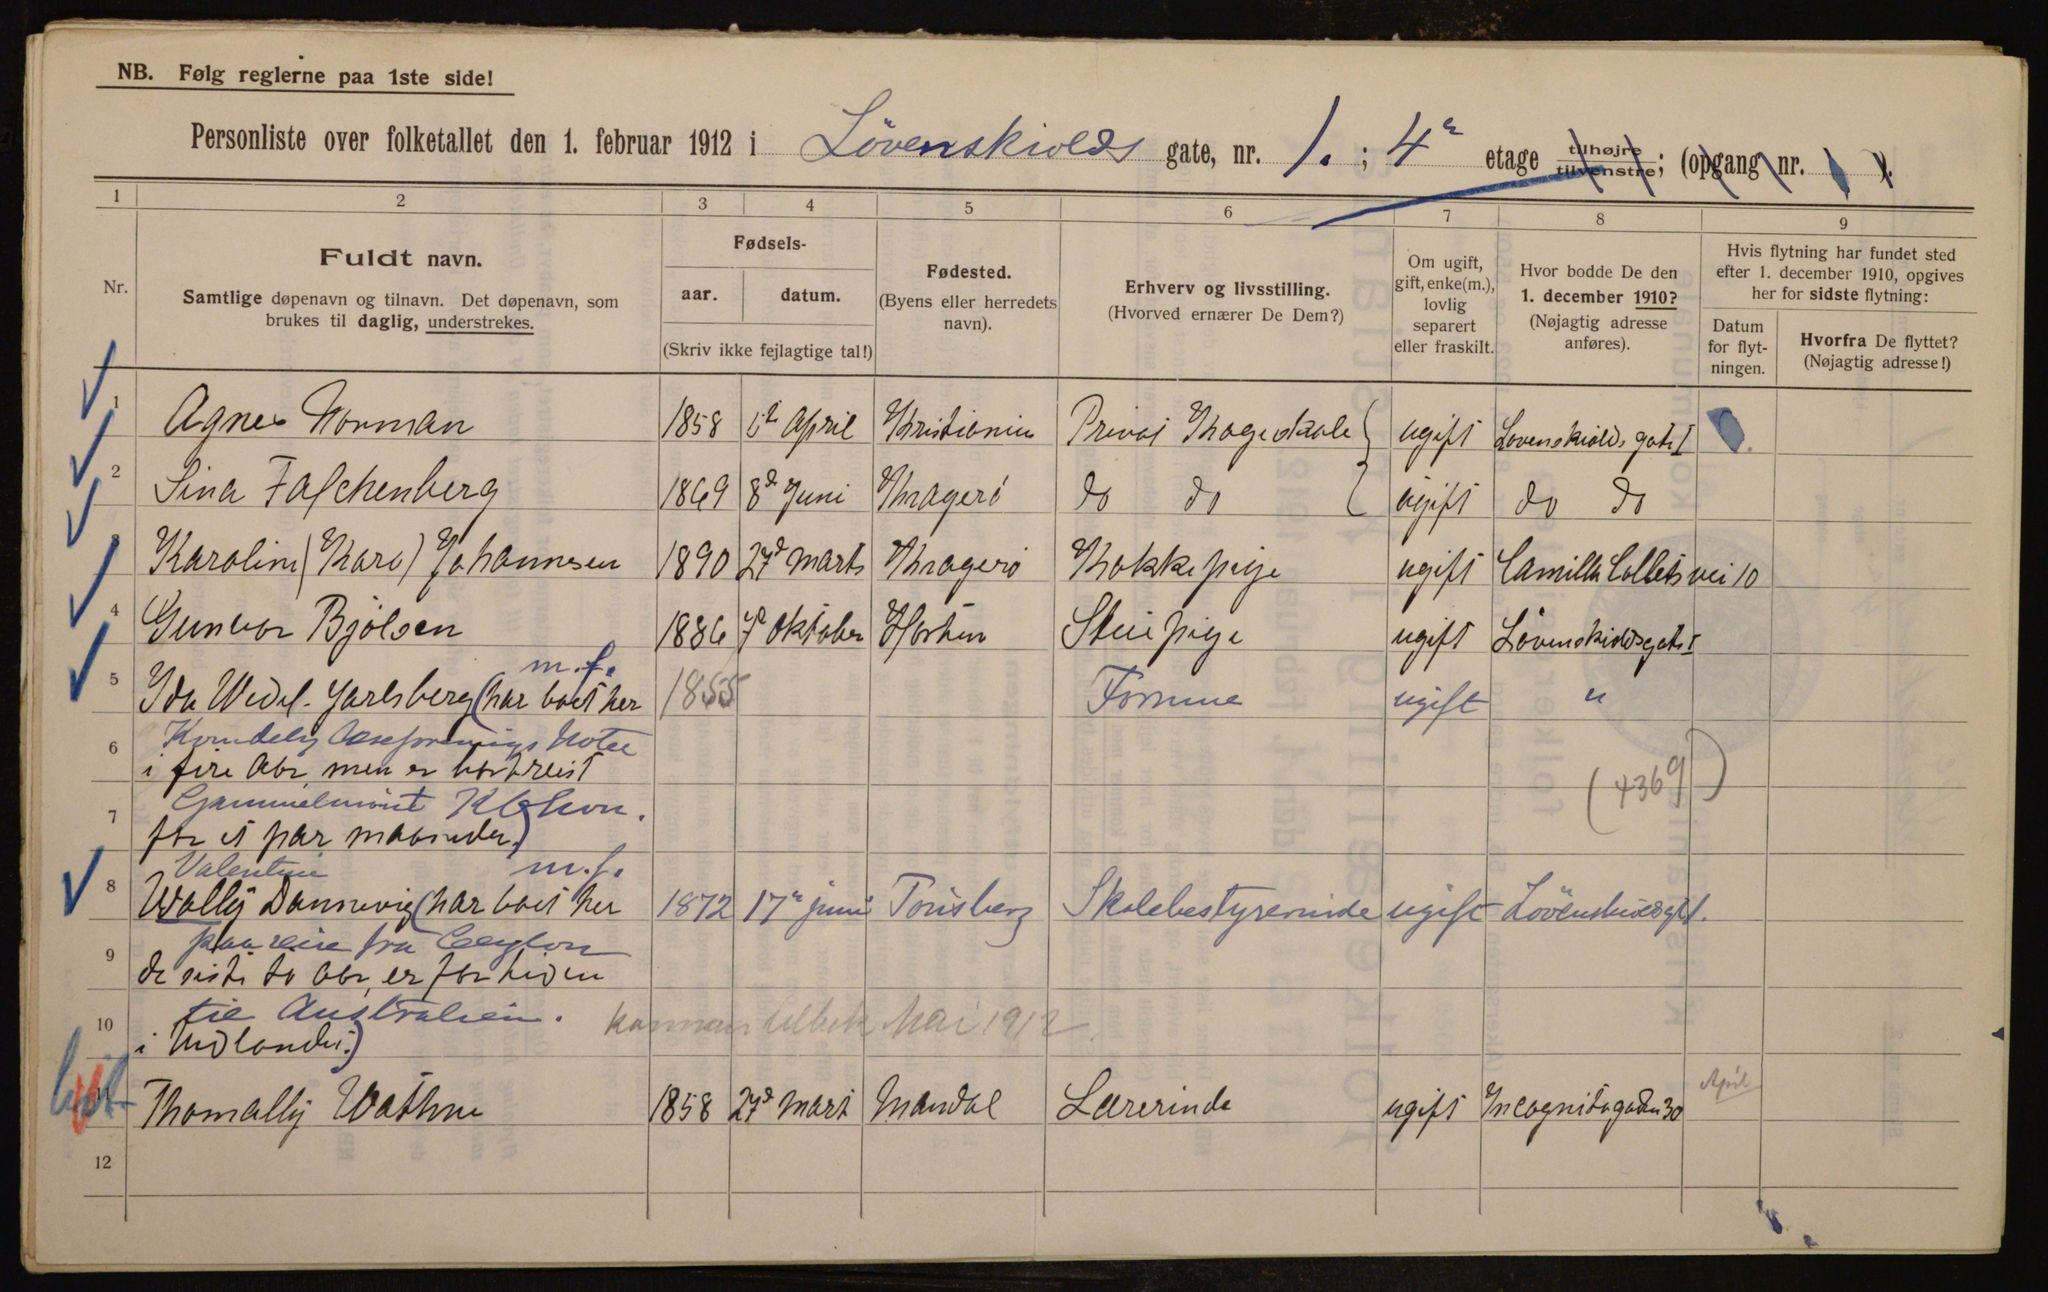 NB. Følg reglerne paa 1ste side!
Personliste over folketallet den 1. februar 1912 i Lövenskiolds gate, nr. 1. ; 4 etage tilhøjre tilvenstre; (opgang nr. ).
1 2 3 4 5 6 7 8 9
Nr.
Fuldt navn.
Samtlige døpenavn og tilnavn. Det døpenavn, som
brukes til daglig, understrekes.
Fødsels-
aar. datum.
(Skriv ikke fejlagtige tal!)
Fødested.
(Byens eller herredets
navn).
Erhverv og livsstilling.
(Hvorved ernærer De Dem?)
Om ugift,
gift, enke(m.),
lovlig
separert
eller fraskilt.
Hvor bodde De den
1. december 1910?
(Nøjagtig adresse
anføres).
Hvis flytning har fundet sted
efter 1. december 1910, opgives
her for sidste flytning:
Datum
for flyt-
ningen.
Hvorfra De flyttet?
(Nøjagtig adresse!)
1 Agnes Norman 1858 April Kristiania Privat ugift Lovenskiolds gate 1
2 Sina Falchenberg 1869 8d Juni Kragerö do do ugift do do
3 Karoline (Kare) Johannesen 1890 27d Marts Kragerö Kokkepige ugift Camilla Colletsvei 10
4 Gunvor Bjölsen 1886 7d Oktober Horten Stuepige ugift Lövenskioldsgate 1
m.f.
5 Ida Wedel-Jarlsberg (har boet her 1855 ugift "
6 Hotel
i fire aar men er bortreist
(4369)
7
for et par maaneder.)
Valentine m.f.
8 Wally Dannevig (har boet her 1872 17 juni Tönsberg Skolebestyrerinde ugift Lövenskioldsgt 1.
paa reise fra Ceylon
9 de siste to aar, er for tiden
til Australien. kommer tilbake Mai 1912
10 i Udlandet.)
11 Thomally Wathne 1858 27d Mart Mandal Lærerinde ugift Incognitogaden 30 April
12